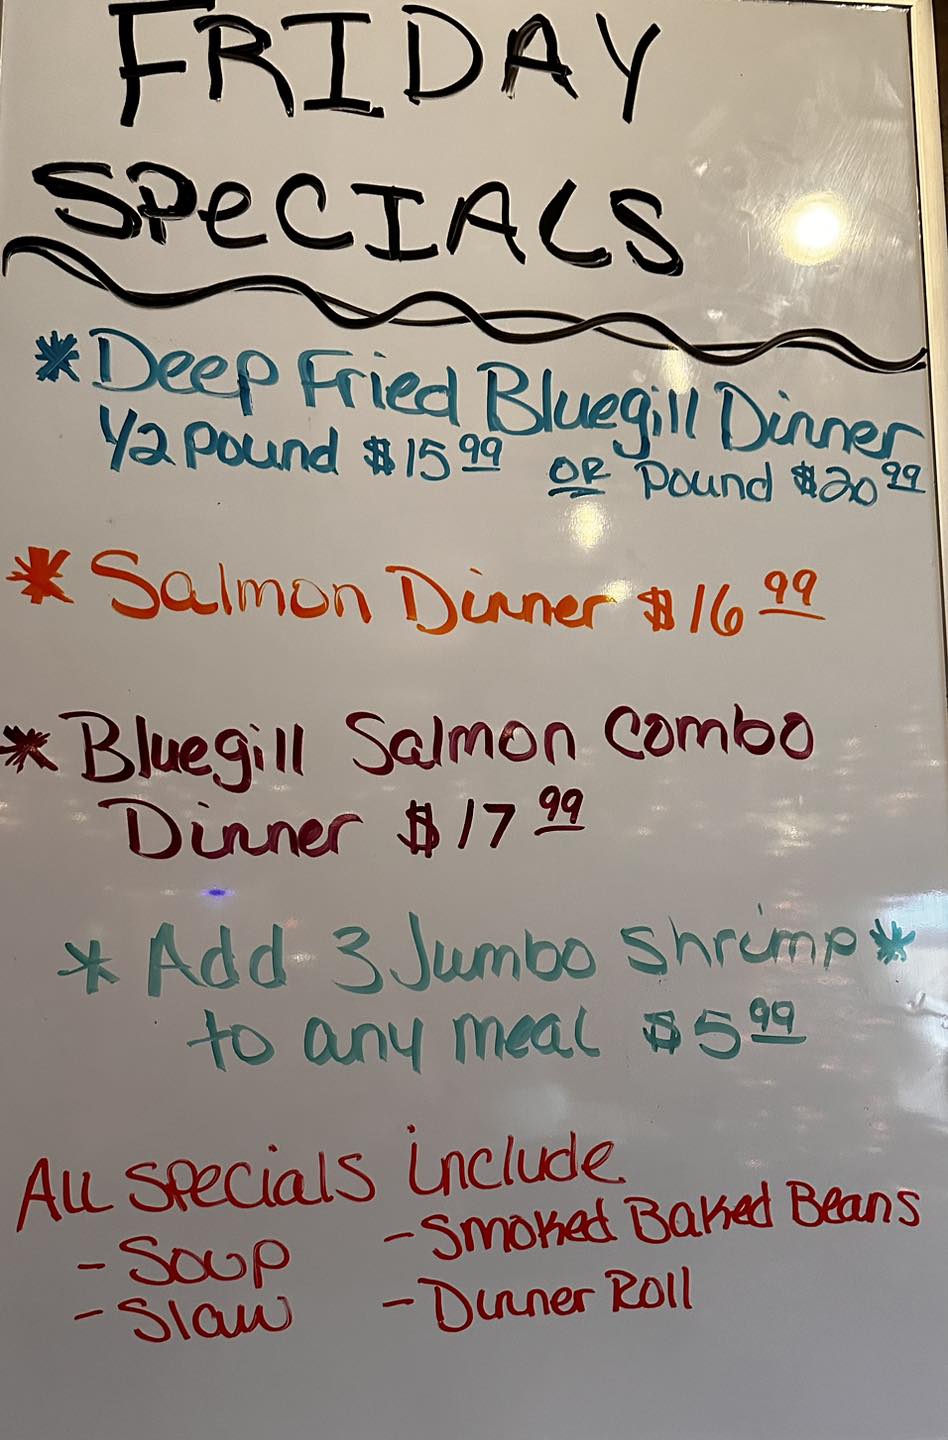 FRIDAY
SPeCIALS
*Deep Fried Bluegill Dinner
1/2 Pound $15 99 OR Pound $20 99
*Salmon Dinner $16 99
*Bluegill Salmon Combo
Dinner $17 99
*Add 3 Jumbo Shrimp*
to any meal $5 99
All specials include
- Soup - Smoked Baked Beans
- Slaw - Dinner Roll